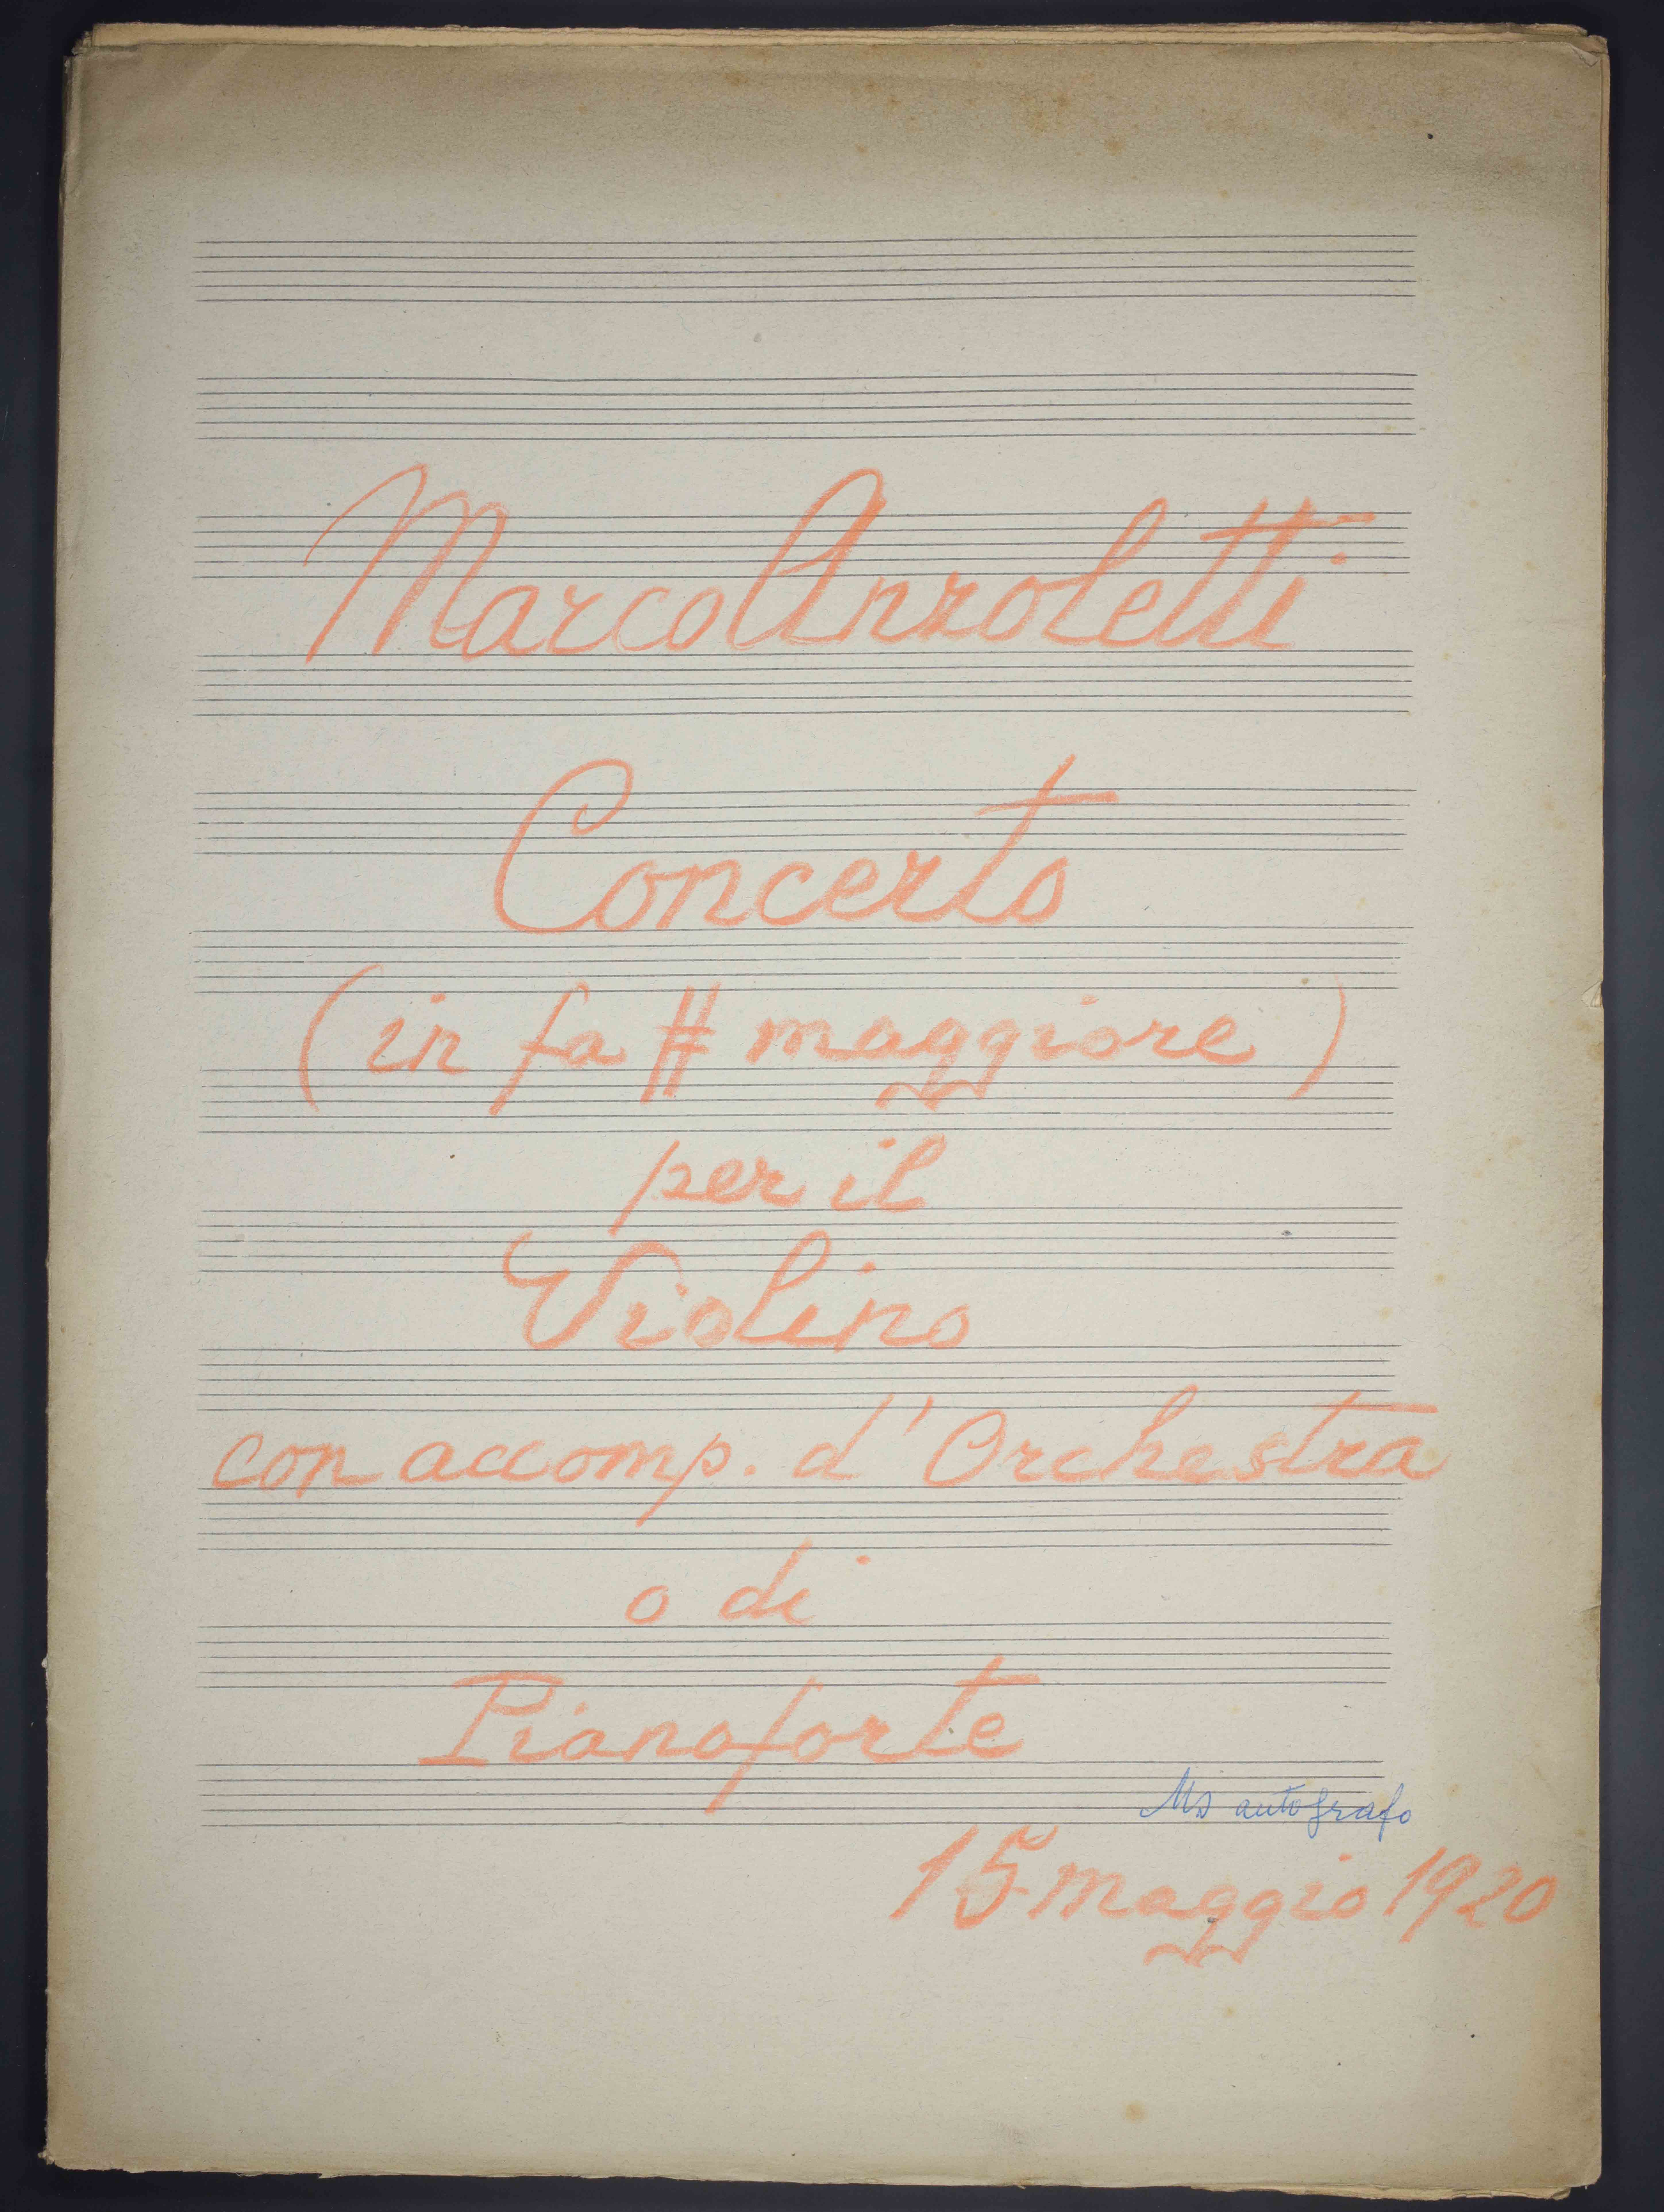 Marco Anzoletti
Concerto
(in fa # maggiore)
per il
Violino
con accomp. d'Orchestra
o di
Pianoforte
Ms autografo
15 maggio 1920